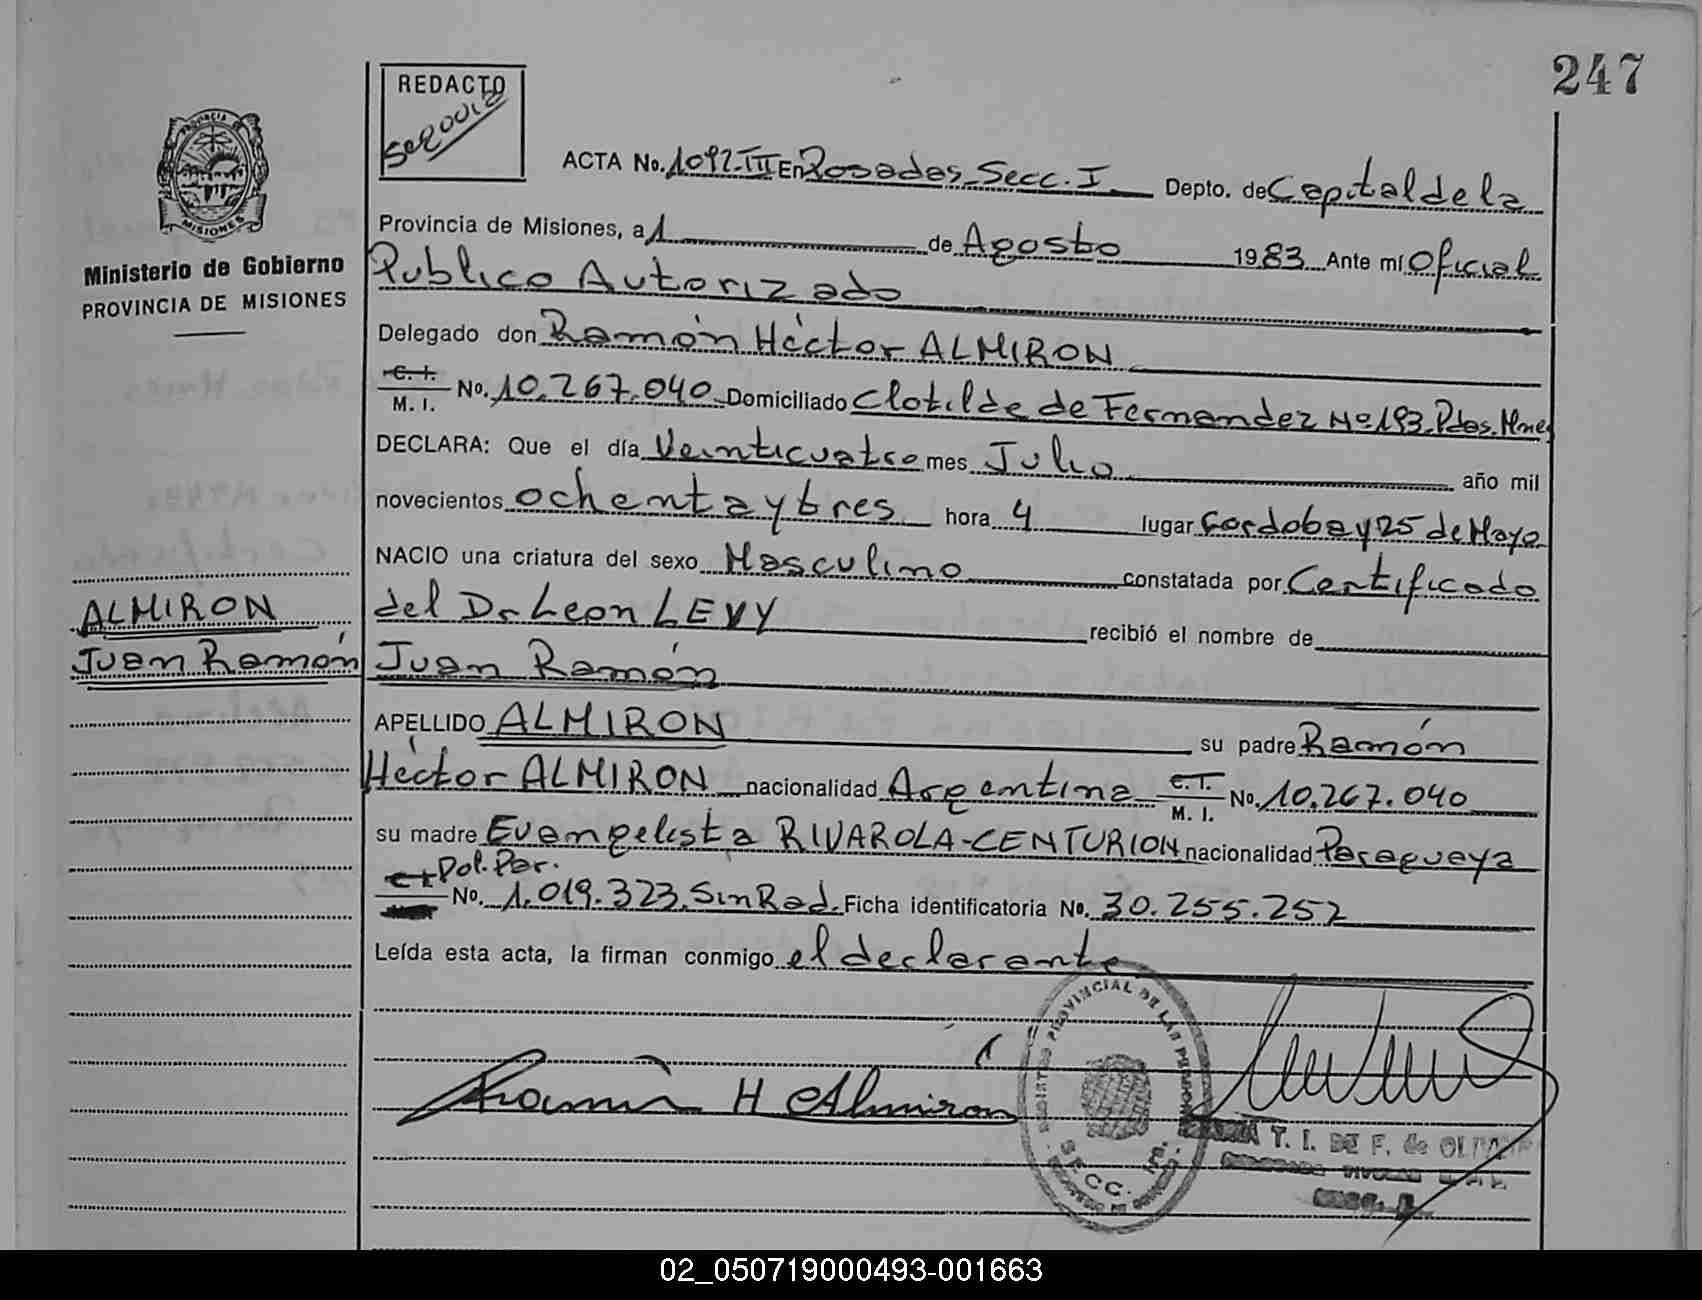 247
REDACTO
ACTA No. 1092-III En Posadas Secc. I. Depto. de Capital de la
Provincia de Misiones, a 1 de Agosto 1983 Ante mí Oficial
Publico Autorizado
PROVINCIA DE
MISIONES
Ministerio de Gobierno
PROVINCIA DE MISIONES
Delegado don Ramón Héctor ALMIRON
C. I.
M. I. No. 10.267.040 Domiciliado Clotilde de Fernandez Nº 193. Pdas. Mnes
DECLARA: Que el día Veinticuatro mes Julio año mil
novecientos ochenta y tres hora 4 lugar Cordoba y 25 de Mayo
NACIO una criatura del sexo Masculino constatada por Certificado
del Dr Leon LEVY recibió el nombre de
ALMIRON
Juan Ramón
Juan Ramón
APELLIDO ALMIRON su padre Ramón
Héctor ALMIRON nacionalidad Argentina C. I.
M. I. No. 10.267.040
su madre Evangelista RIVAROLA-CENTURION nacionalidad Paraguaya
Pol. Par.
No. 1.019.323. Sin Rad. Ficha identificatoria No. 30.255.252
Leída esta acta, la firman conmigo el declarante
Ramón H Almirón
REGISTRO PROVINCIAL DE LAS PERSONAS
SECC.
T. I. DE F. de
02_050719000493-001663